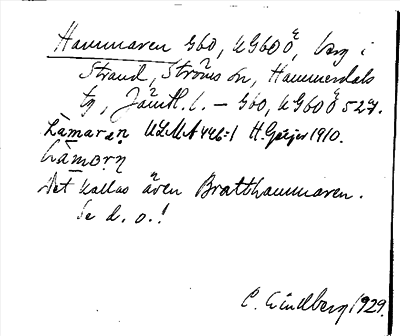 Hammaren G60, UG60Ö, berg i
Strand, Ströms sn, Hammerdals
tg, Jämtl. l. – G60, UG60Ö 527.
Lamaran ULMA 446:1 H. Geijer 1910.
hămərn
Det kallas även Bratthammaren.
Se d. o.!
C. Lindberg 1929.